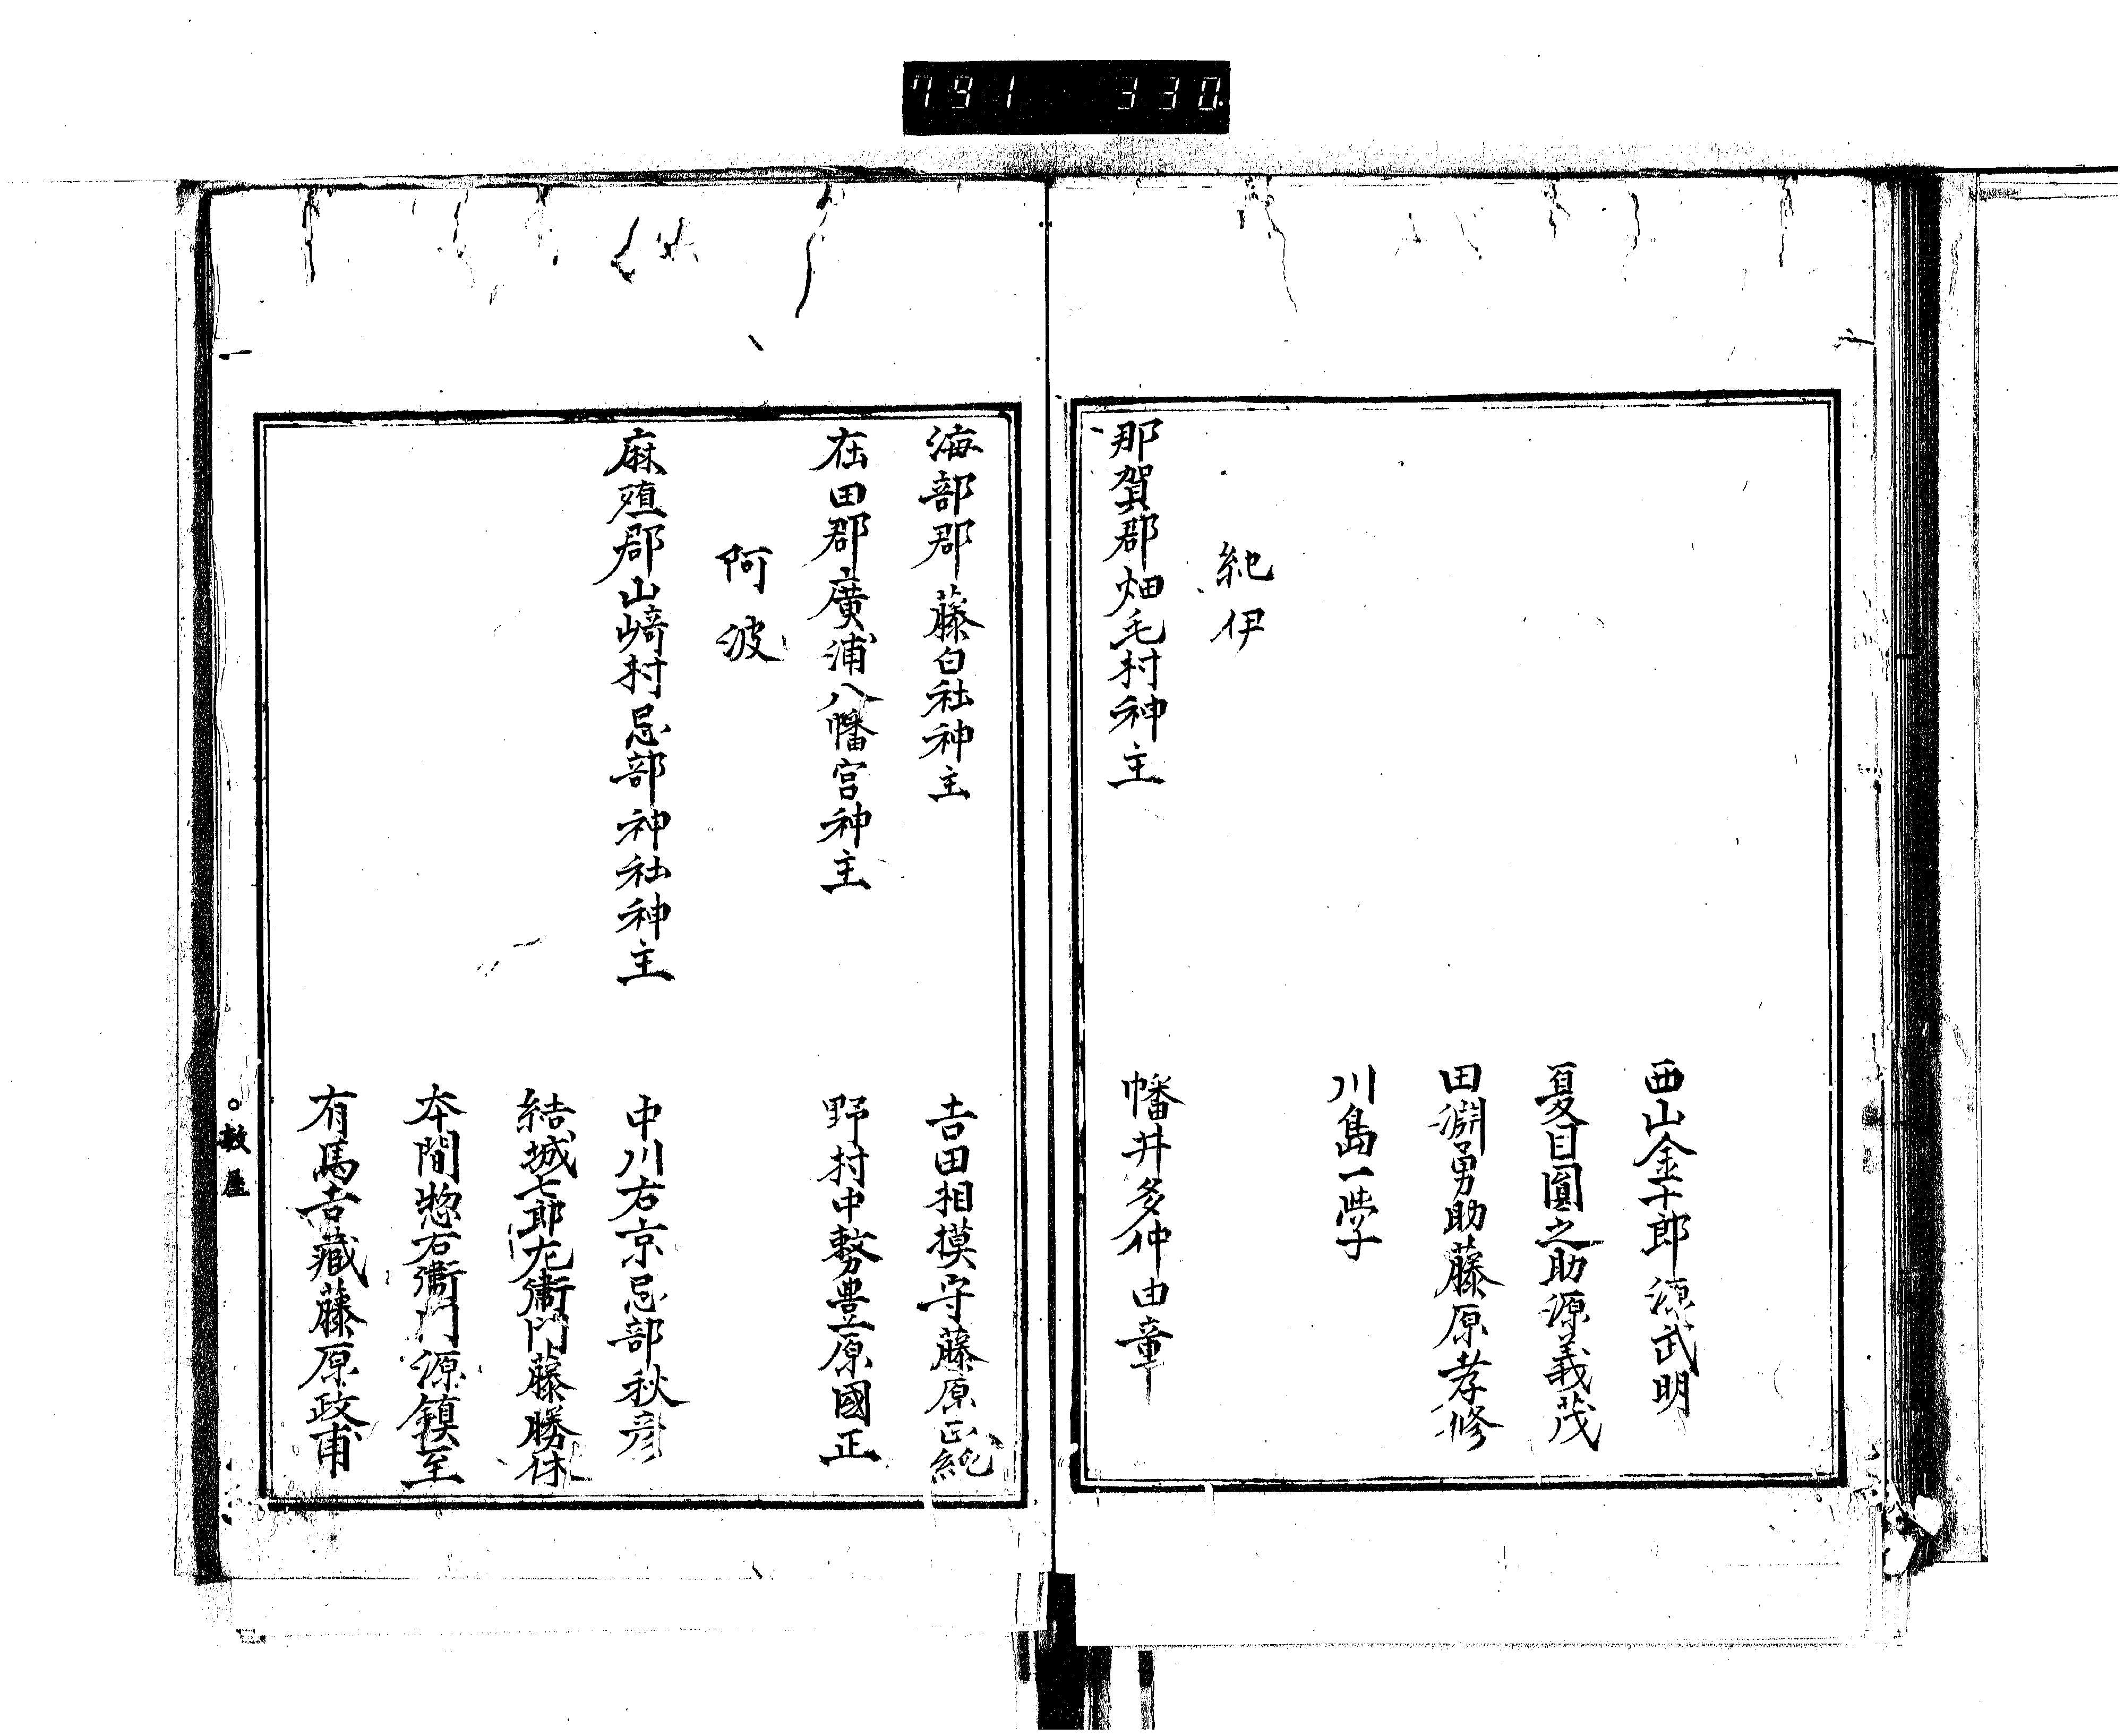 791 330
西山金十郎源武明
夏目圓之助源義茂
田淵勇助藤原孝修
川島一学
紀伊
那賀郡畑毛村神主
幡井多仲由章
海部郡藤白社神主
吉田相摸守藤原正純
在田郡廣浦八幡宮神主
野村中務豊原國正
阿波
麻殖郡山﨑村忌部神社神主
中川右京忌部秋彦
結城七郎左衛門藤勝休
本間惣右衛門源鎮至
有馬吉藏藤原政甫